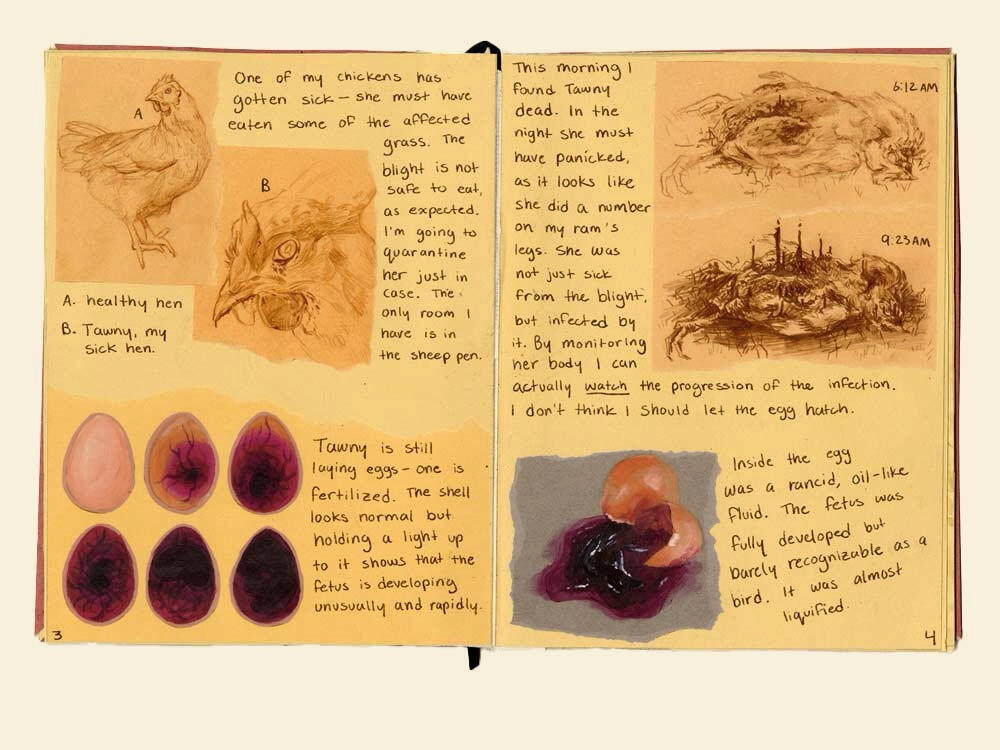 One of my chickens has
gotten sick — she must have
eaten some of the affected
grass. The
blight is not
safe to eat,
as expected.
I'm going to
quarantine
her just in
case. The
only room I
have is in
the sheep pen.
A
B
A. healthy hen
B. Tawny, my
sick hen.
Tawny is still
laying eggs - one is
fertilized. The shell
looks normal but
holding a light up
to it shows that the
fetus is developing
unusually and rapidly.
3
This morning I
found Tawny
dead. In the
night she must
have panicked,
as it looks like
she did a number
on my ram's
legs. She was
not just sick
from the blight,
but infected by
it. By monitoring
her body I can
actually watch the progression of the infection.
I don't think I should let the egg hatch.
6:12 AM
9:23 AM
Inside the egg
was a rancid, oil-like
fluid. The fetus was
fully developed but
barely recognizable as a
bird. It was almost
liquified.
4